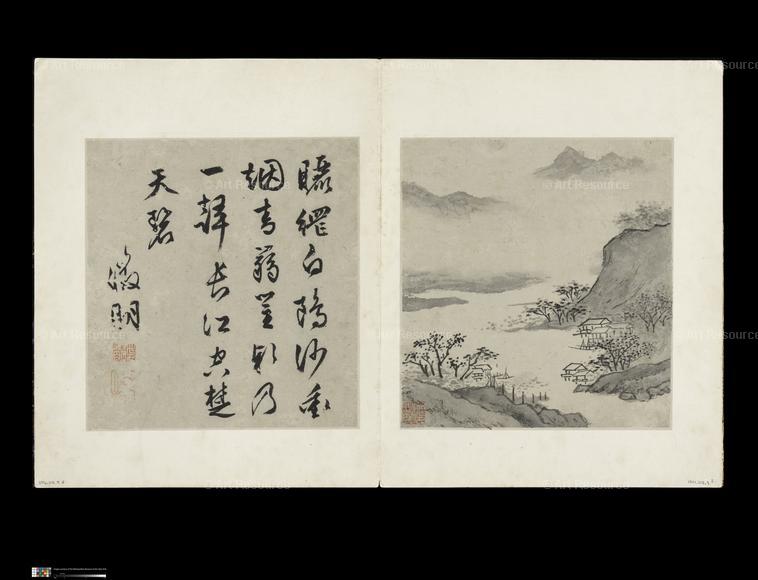 曬網白鷗沙衝
烟青蒻笠欸乃
一聲長江空楚
天碧
徵明
© Art Resource
© Art Resource
© Art Resource
© Art Resource
© Art Resource
© Art Resource
© Art Resource
© Art Resource
© Art Resource